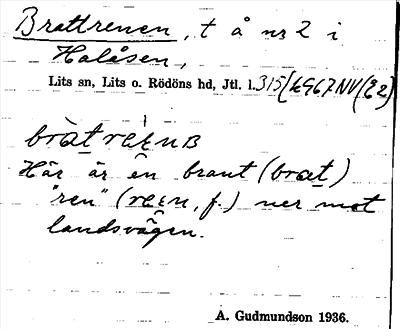 Brattrenen, t å nr 2 i
Halåsen,
Lits sn, Lits o. Rödöns hd, Jtl. l. 315
bràt
Här är en brant (brat)
"ren" (ren, f.) ner mot
landsvägen.
A. Gudmundson 1936.